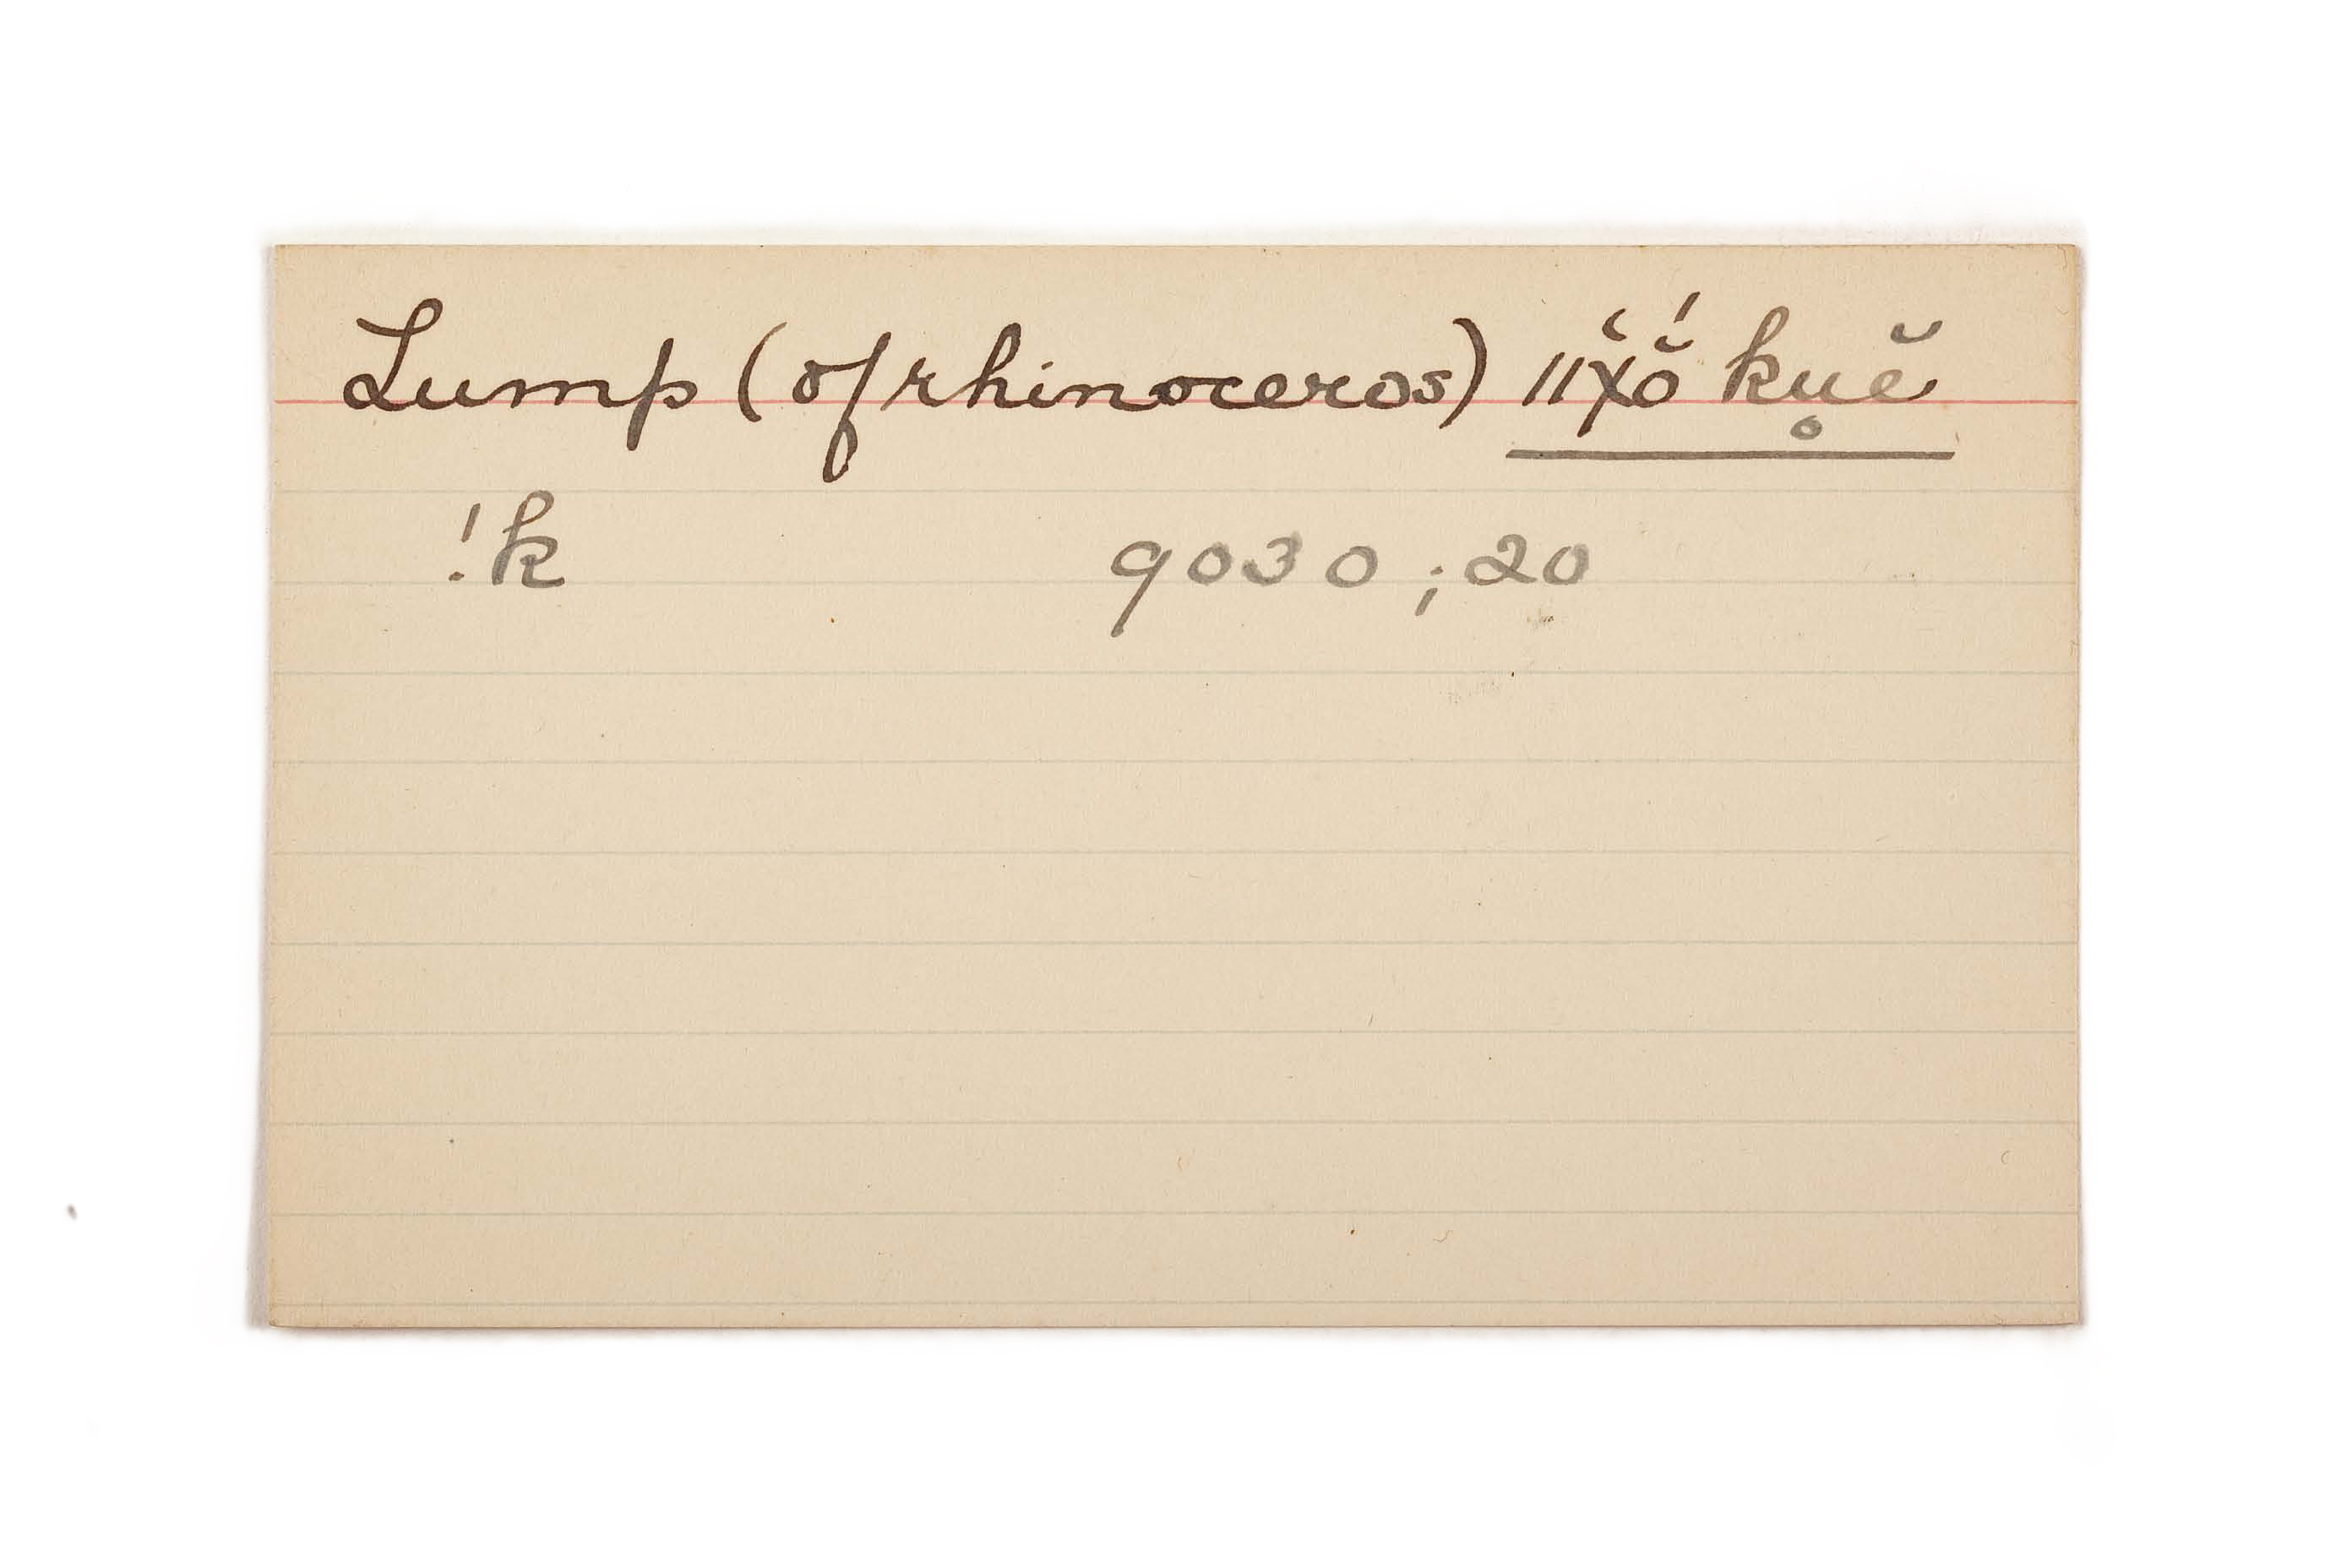 Lump (of rhinoceros) ǁχʻŏ́ ku̥ĕ
!k 9030; 20